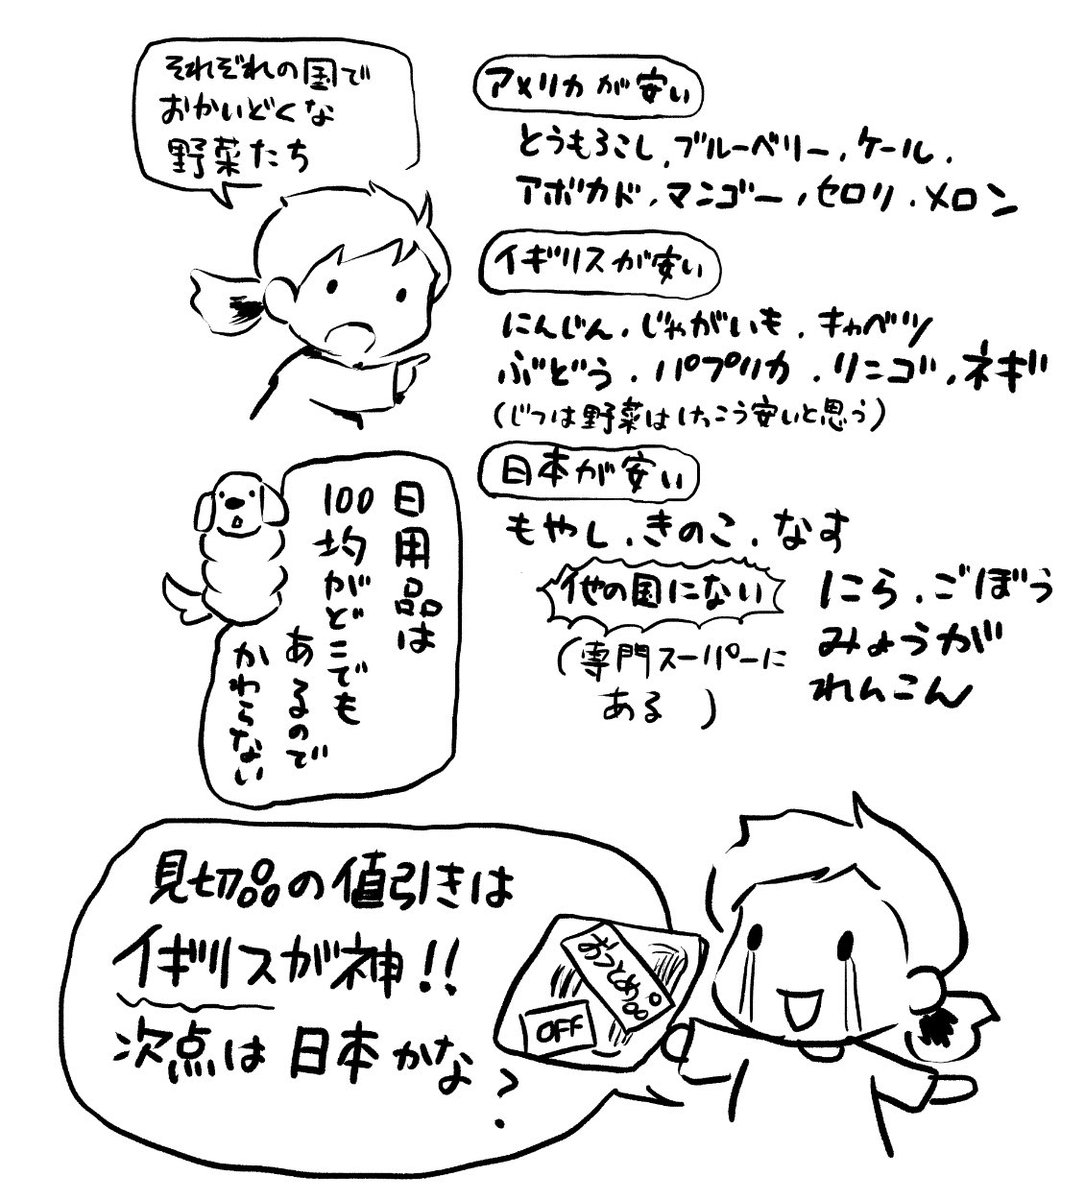 それぞれの国で
おかいどくな
野菜たち
アメリカが安い
とうもろこし、ブルーベリー、ケール、
アボカド、マンゴー、セロリ、メロン
イギリスが安い
にんじん、じゃがいも、キャベツ
ぶどう、パプリカ、リンゴ、ネギ
(じつは野菜はけっこう安いと思う)
日本が安い
もやし、きのこ、なす
他の国にない
(専門スーパーに
ある)
にら、ごぼう
みょうが
れんこん
日用品は
100均がどこでも
あるので
かわらない
見切品の値引きは
イギリスが神!!
次点は日本かな?
おつとめ品
OFF